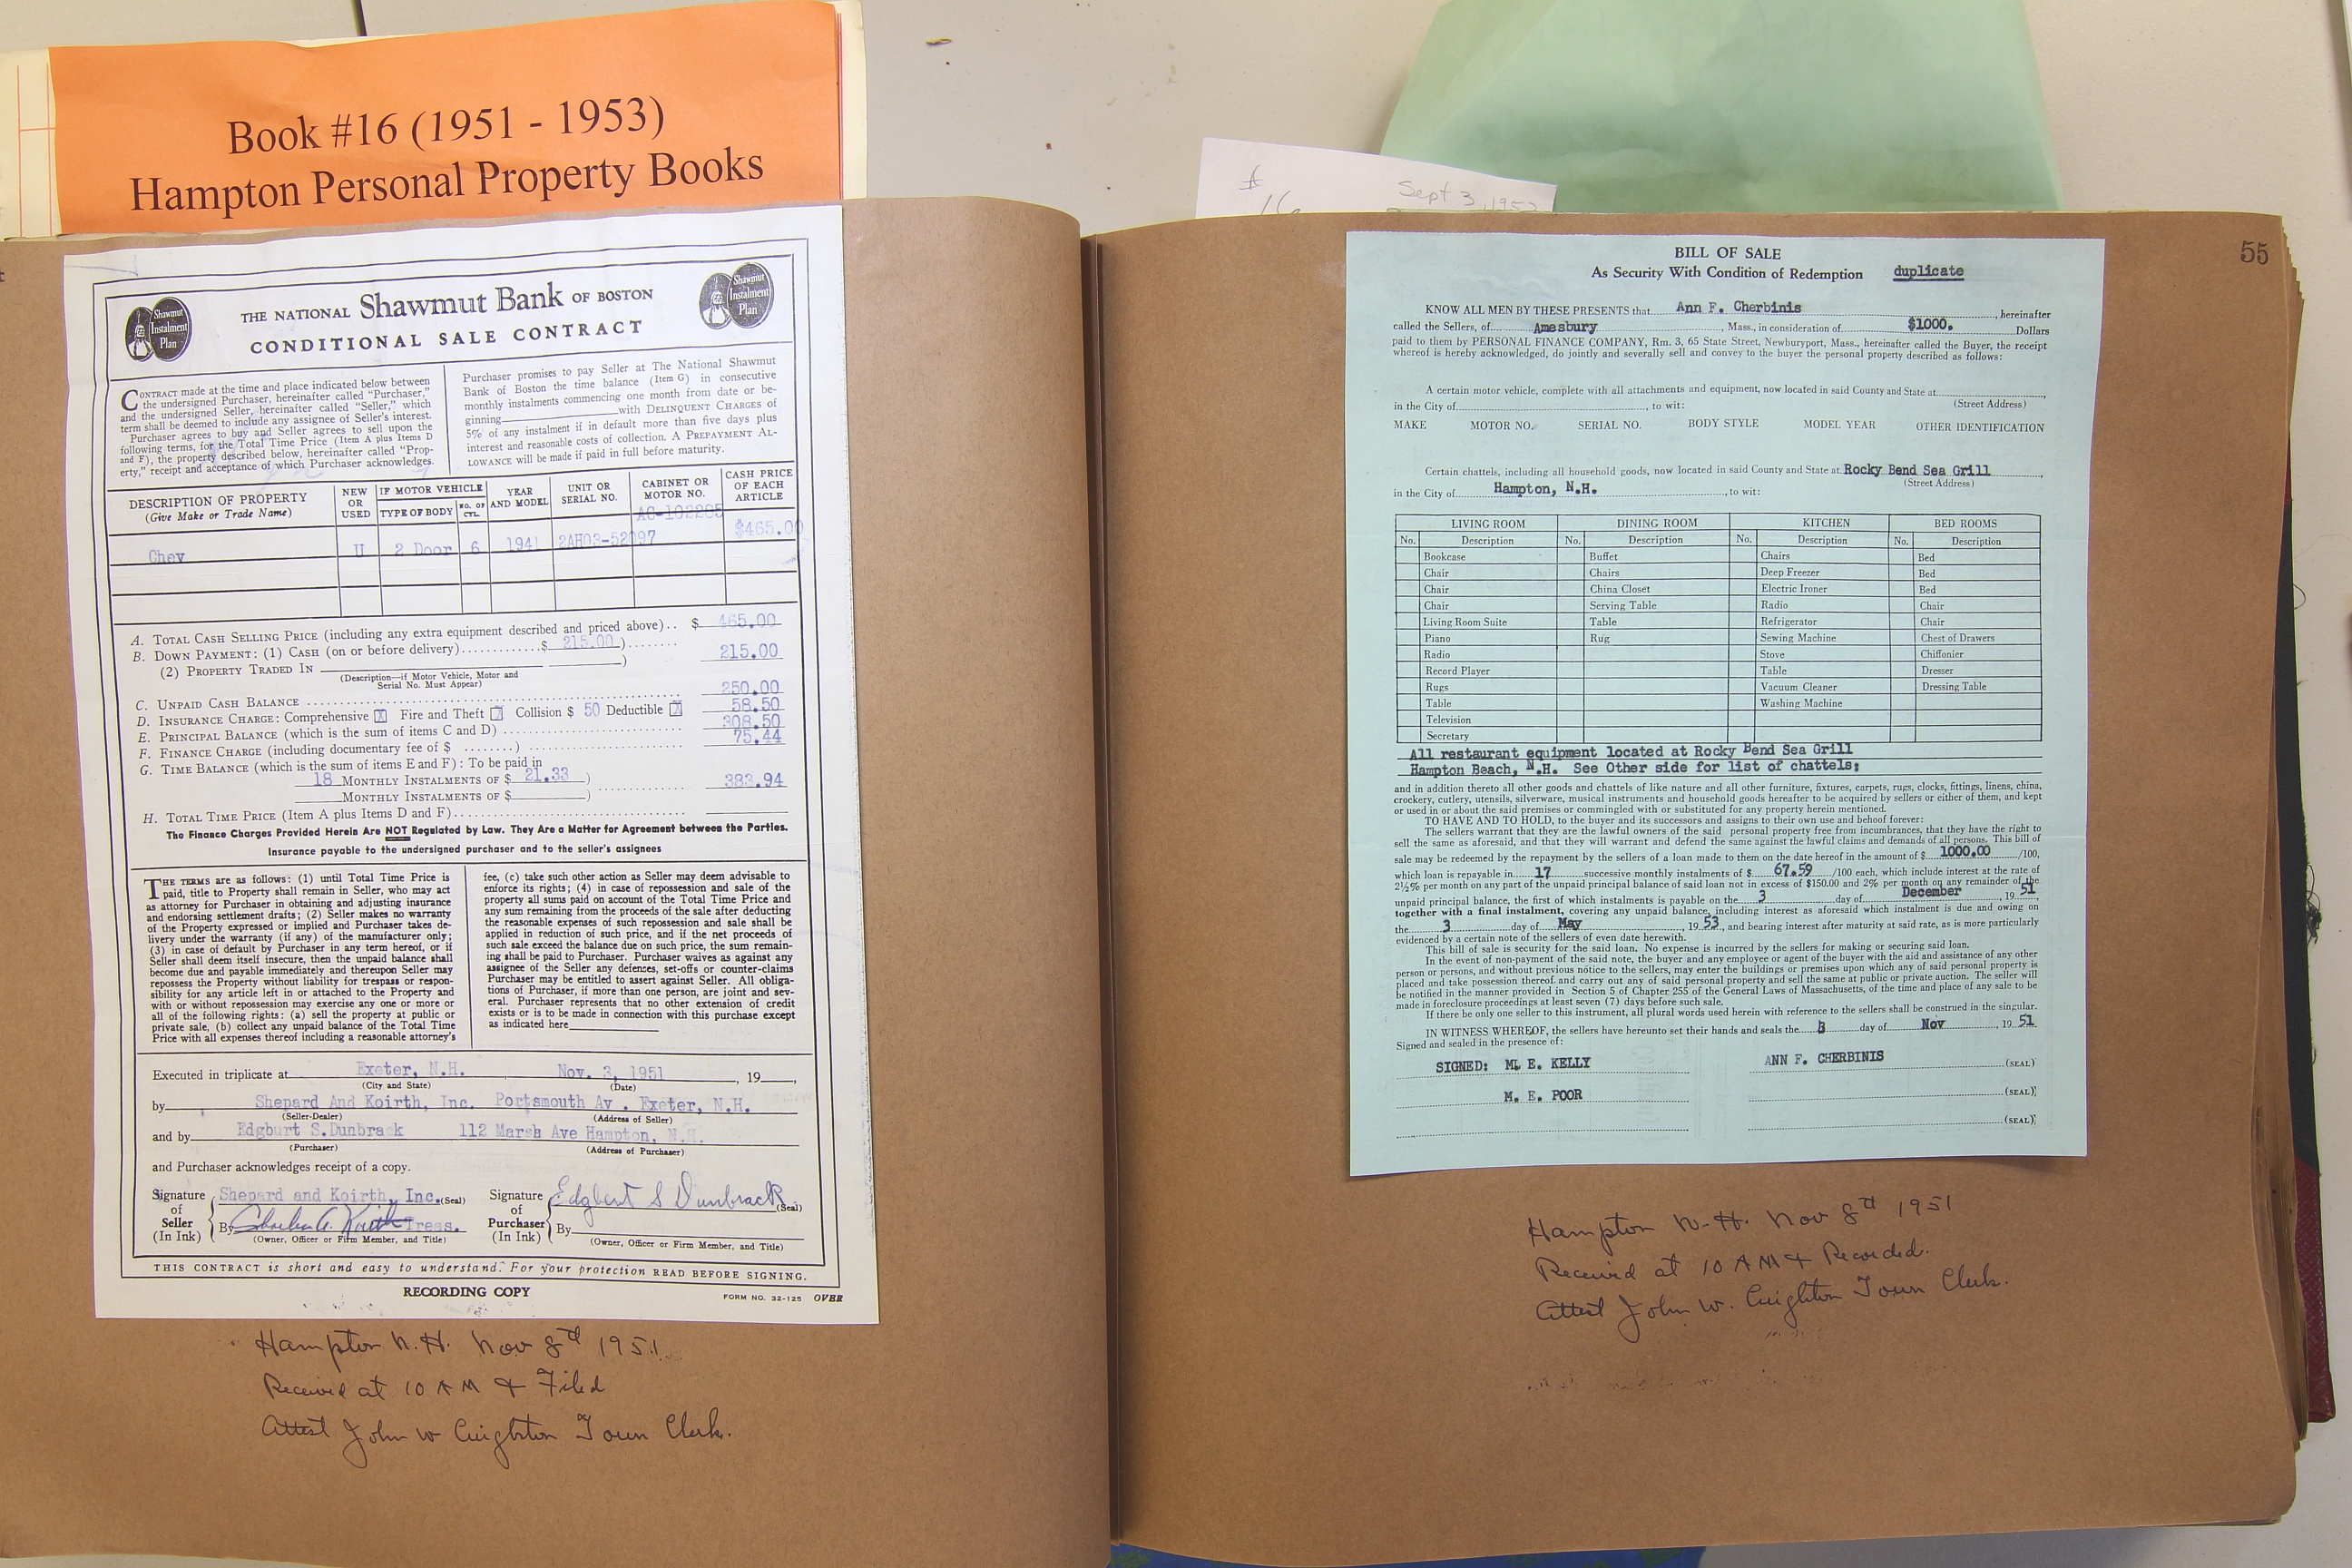 Book #16 (1951 - 1953)
Hampton Personal Property Books
Shawmut
Instalment
Plan
THE NATIONAL Shawmut Bank OF BOSTON
CONDITIONAL SALE CONTRACT
Shawmut
Instalment
Plan
CONTRACT made at the time and place indicated below between
the undersigned Purchaser, hereinafter called "Purchaser,"
and the undersigned Seller, hereinafter called "Seller," which
term shall be deemed to include any assignee of Seller's interest.
Purchaser agrees to buy and Seller agrees to sell upon the
following terms, for the Total Time Price (Item A plus Items D
and F), the property described below, hereinafter called "Prop-
erty," receipt and acceptance of which Purchaser acknowledges.
Purchaser promises to pay Seller at The National Shawmut
Bank of Boston the time balance (Item G) in consecutive
monthly instalments commencing one month from date or be-
ginning with DELINQUENT CHARGES of
5% of any instalment if in default more than five days plus
interest and reasonable costs of collection. A PREPAYMENT AL-
LOWANCE will be made if paid in full before maturity.
DESCRIPTION OF PROPERTY
(Give Make or Trade Name)
NEW
OR
USED
IF MOTOR VEHICLE
TYPE OF BODY
NO. OF
CYL.
YEAR
AND MODEL
UNIT OR
SERIAL NO.
CABINET OR
MOTOR NO.
CASH PRICE
OF EACH
ARTICLE
Chev U 2 Door 6 1941 2AH03-52097 $465.00
A. TOTAL CASH SELLING PRICE (including any extra equipment described and priced above).. $ 465.00
B. DOWN PAYMENT: (1) CASH (on or before delivery) $ 215.00 ) 215.00
(2) PROPERTY TRADED IN )
(Description—if Motor Vehicle, Motor and
Serial No. Must Appear)
C. UNPAID CASH BALANCE 250.00
D. INSURANCE CHARGE: Comprehensive X Fire and Theft X Collision $ 50 Deductible X 58.50
E. PRINCIPAL BALANCE (which is the sum of items C and D) 308.50
F. FINANCE CHARGE (including documentary fee of $ ........) 75.44
G. TIME BALANCE (which is the sum of items E and F): To be paid in
18 MONTHLY INSTALMENTS OF $ 21.33 ) 383.94
MONTHLY INSTALMENTS OF $ )
H. TOTAL TIME PRICE (Item A plus Items D and F)
The Finance Charges Provided Herein Are NOT Regulated by Law. They Are a Matter for Agreement between the Parties.
Insurance payable to the undersigned purchaser and to the seller's assignees
THE TERMS are as follows: (1) until Total Time Price is
paid, title to Property shall remain in Seller, who may act
as attorney for Purchaser in obtaining and adjusting insurance
and endorsing settlement drafts; (2) Seller makes no warranty
of the Property expressed or implied and Purchaser takes de-
livery under the warranty (if any) of the manufacturer only;
(3) in case of default by Purchaser in any term hereof, or if
Seller shall deem itself insecure, then the unpaid balance shall
become due and payable immediately and thereupon Seller may
repossess the Property without liability for trespass or respon-
sibility for any article left in or attached to the Property and
with or without repossession may exercise any one or more or
all of the following rights: (a) sell the property at public or
private sale, (b) collect any unpaid balance of the Total Time
Price with all expenses thereof including a reasonable attorney's
fee, (c) take such other action as Seller may deem advisable to
enforce its rights; (4) in case of repossession and sale of the
property all sums paid on account of the Total Time Price and
any sum remaining from the proceeds of the sale after deducting
the reasonable expenses of such repossession and sale shall be
applied in reduction of such price, and if the net proceeds of
such sale exceed the balance due on such price, the sum remain-
ing shall be paid to Purchaser. Purchaser waives as against any
assignee of the Seller any defences, set-offs or counter-claims
Purchaser may be entitled to assert against Seller. All obliga-
tions of Purchaser, if more than one person, are joint and sev-
eral. Purchaser represents that no other extension of credit
exists or is to be made in connection with this purchase except
as indicated here
Executed in triplicate at Exeter, N.H. Nov. 3, 1951, 19
(City and State) (Date)
by Shepard And Koirth, Inc. Portsmouth Av. Exeter, N.H.
(Seller-Dealer) (Address of Seller)
and by Edgburt S.Dunbrack 112 Marsh Ave Hampton, N.H.
(Purchaser) (Address of Purchaser)
and Purchaser acknowledges receipt of a copy.
Signature
of
Seller
(In Ink)
Shepard and Koirth, Inc. (Seal)
By Charles A. Koirth Treas.
(Owner, Officer or Firm Member, and Title)
Signature
of
Purchaser
(In Ink)
Edgburt S Dunbrack (Seal)
By
(Owner, Officer or Firm Member, and Title)
THIS CONTRACT is short and easy to understand. For your protection READ BEFORE SIGNING.
RECORDING COPY
FORM NO. 32-125 OVER
Hampton N.H. Nov 8th 1951
Received at 10 AM & Filed
Attest John W Creighton Town Clerk.
#
16
Sept 3, 1952
55
BILL OF SALE
As Security With Condition of Redemption duplicate
KNOW ALL MEN BY THESE PRESENTS that Ann F. Cherbinis, hereinafter
called the Sellers, of Amesbury, Mass., in consideration of $1000. Dollars
paid to them by PERSONAL FINANCE COMPANY, Rm. 3, 65 State Street, Newburyport, Mass., hereinafter called the Buyer, the receipt
whereof is hereby acknowledged, do jointly and severally sell and convey to the buyer the personal property described as follows:
A certain motor vehicle, complete with all attachments and equipment, now located in said County and State at
(Street Address)
in the City of, to wit:
MAKE MOTOR NO. SERIAL NO. BODY STYLE MODEL YEAR OTHER IDENTIFICATION
Certain chattels, including all household goods, now located in said County and State at Rocky Bend Sea Grill
(Street Address)
in the City of Hampton, N.H., to wit:
LIVING ROOM DINING ROOM KITCHEN BED ROOMS
No. Description No. Description No. Description No. Description
Bookcase Buffet Chairs Bed
Chair Chairs Deep Freezer Bed
Chair China Closet Electric Ironer Bed
Chair Serving Table Radio Chair
Living Room Suite Table Refrigerator Chair
Piano Rug Sewing Machine Chest of Drawers
Radio Stove Chiffonier
Record Player Table Dresser
Rugs Vacuum Cleaner Dressing Table
Table Washing Machine
Television
Secretary
All restaurant equipment located at Rocky Bend Sea Grill
Hampton Beach, N.H. See Other side for list of chattels:
and in addition thereto all other goods and chattels of like nature and all other furniture, fixtures, carpets, rugs, clocks, fittings, linens, china,
crockery, cutlery, utensils, silverware, musical instruments and household goods hereafter to be acquired by sellers or either of them, and kept
or used in or about the said premises or commingled with or substituted for any property herein mentioned.
TO HAVE AND TO HOLD, to the buyer and its successors and assigns to their own use and behoof forever:
The sellers warrant that they are the lawful owners of the said personal property free from incumbrances, that they have the right to
sell the same as aforesaid, and that they will warrant and defend the same against the lawful claims and demands of all persons. This bill of
sale may be redeemed by the repayment by the sellers of a loan made to them on the date hereof in the amount of $ 1000.00 /100,
which loan is repayable in 17 successive monthly instalments of $ 67.59 /100 each, which include interest at the rate of
2½% per month on any part of the unpaid principal balance of said loan not in excess of $150.00 and 2% per month on any remainder of the
unpaid principal balance, the first of which instalments is payable on the 3 day of December, 19 51
together with a final instalment, covering any unpaid balance, including interest as aforesaid which instalment is due and owing on
the 3 day of May, 19 53, and bearing interest after maturity at said rate, as is more particularly
evidenced by a certain note of the sellers of even date herewith.
This bill of sale is security for the said loan. No expense is incurred by the sellers for making or securing said loan.
In the event of non-payment of the said note, the buyer and any employee or agent of the buyer with the aid and assistance of any other
person or persons, and without previous notice to the sellers, may enter the buildings or premises upon which any of said personal property is
placed and take possession thereof and carry out any of said personal property and sell the same at public or private auction. The seller will
be notified in the manner provided in Section 5 of Chapter 255 of the General Laws of Massachusetts, of the time and place of any sale to be
made in foreclosure proceedings at least seven (7) days before such sale.
If there be only one seller to this instrument, all plural words used herein with reference to the sellers shall be construed in the singular.
IN WITNESS WHEREOF, the sellers have hereunto set their hands and seals the 3 day of Nov, 19 51
Signed and sealed in the presence of:
SIGNED: M. E. KELLY ANN F. CHERBINIS (SEAL)
M. E. POOR (SEAL)
(SEAL)
Hampton N.H. Nov 8th 1951
Received at 10 AM & Recorded.
Attest John W. Creighton Town Clerk.